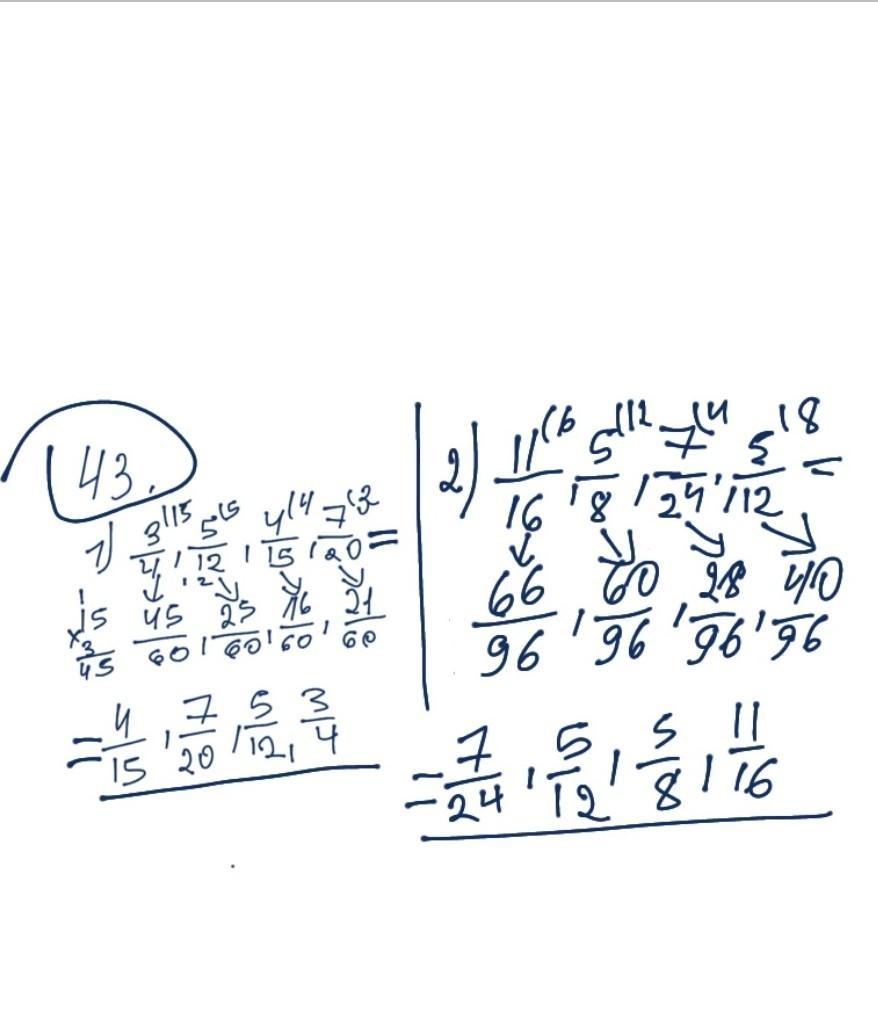 43.
1) 3/4 (15, 5/12 (5, 4/15 (4, 7/20 (3 =
45/60, 25/60, 16/60, 21/60
1
15
× 3
45
= 4/15, 7/20, 5/12, 3/4
2) 11/16 (6, 5/8 (12, 7/24 (4, 5/12 (8 =
66/96, 60/96, 28/96, 40/96
= 7/24, 5/12, 5/8, 11/16